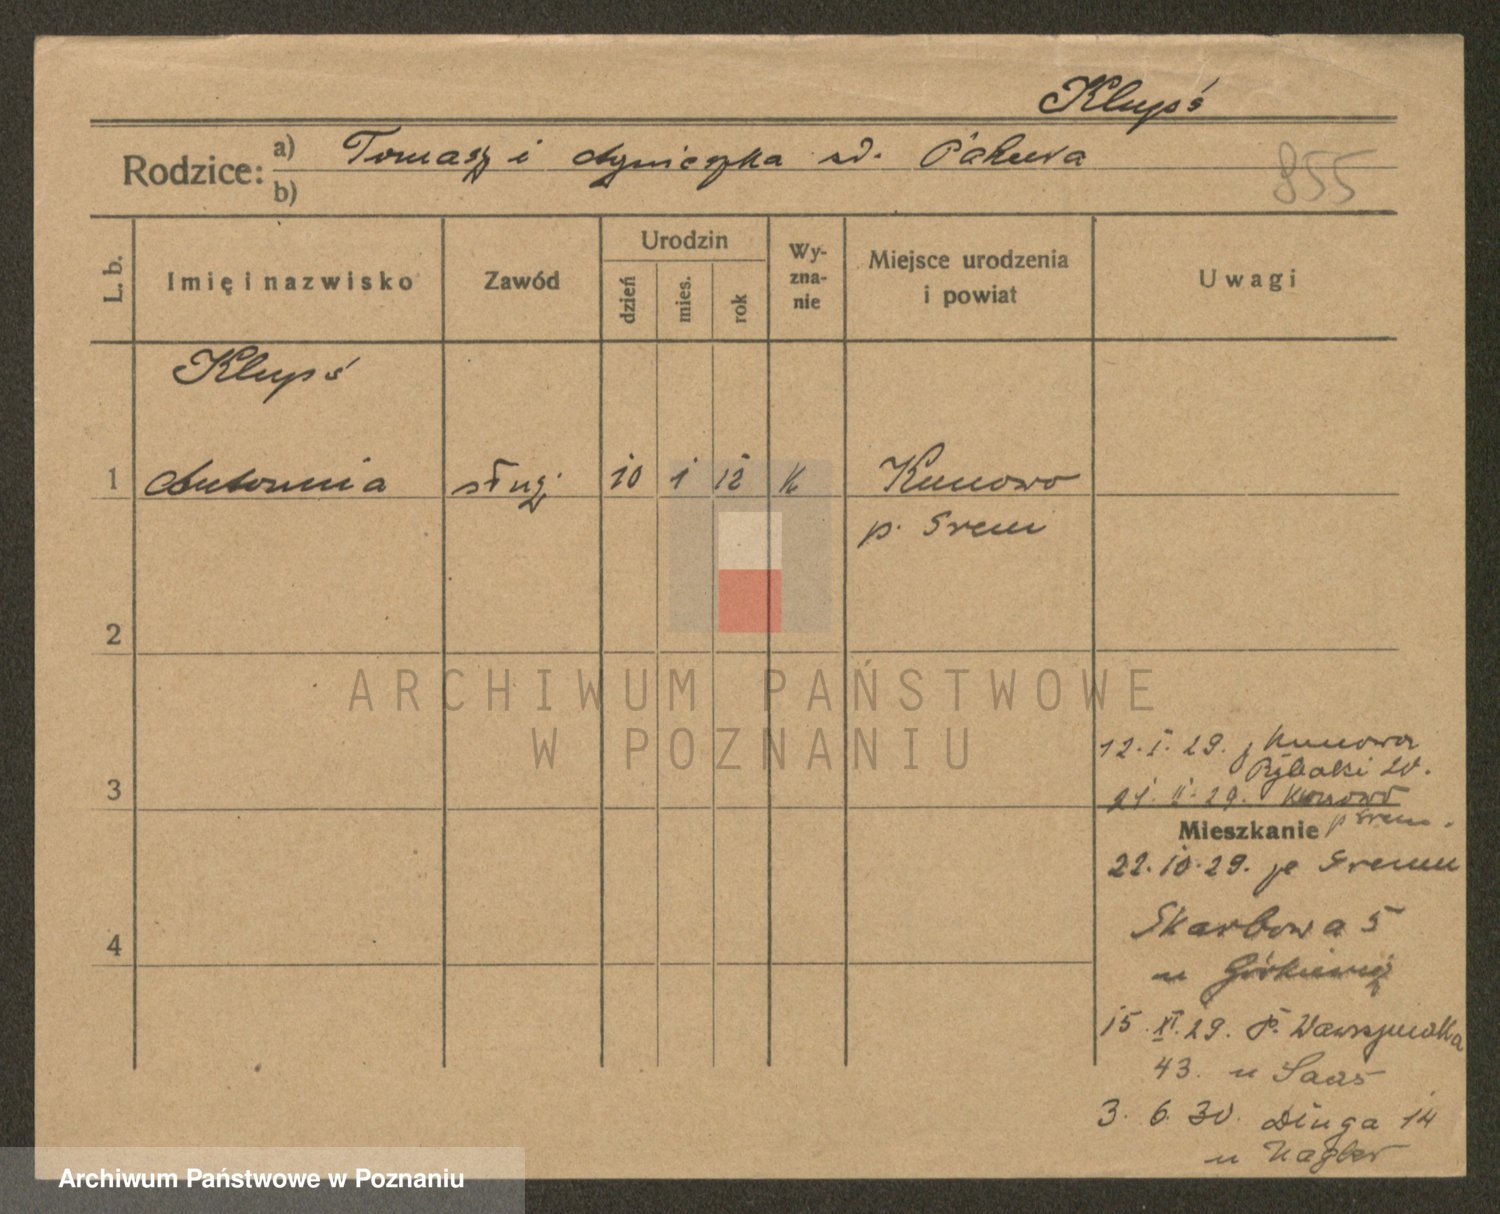 Klupś
Rodzice: a) Tomasz i Agnieszka
b)
855
L. b.
Imię i nazwisko
Zawód
Urodzin
dzień
mies.
rok
Wy-
zna-
nie
Miejsce urodzenia
i powiat
Uwagi
Klupś
1 Antonina służ 10 1 12 K Kunowo
p. Srem
2
ARCHIWUM PAŃSTWOWE
W POZNANIU
12. I. 29. z Kunowa
Rybaki 20.
3
21. II. 29. Kunowo
p Srem.
Mieszkanie
22. 10. 29. Sremu
Skarbowa 5
4
u
15. XI. 29. Wawrzyniaka
43. u Saas
3. 6. 30. Długa 14
u Nagler
Archiwum Państwowe w Poznaniu